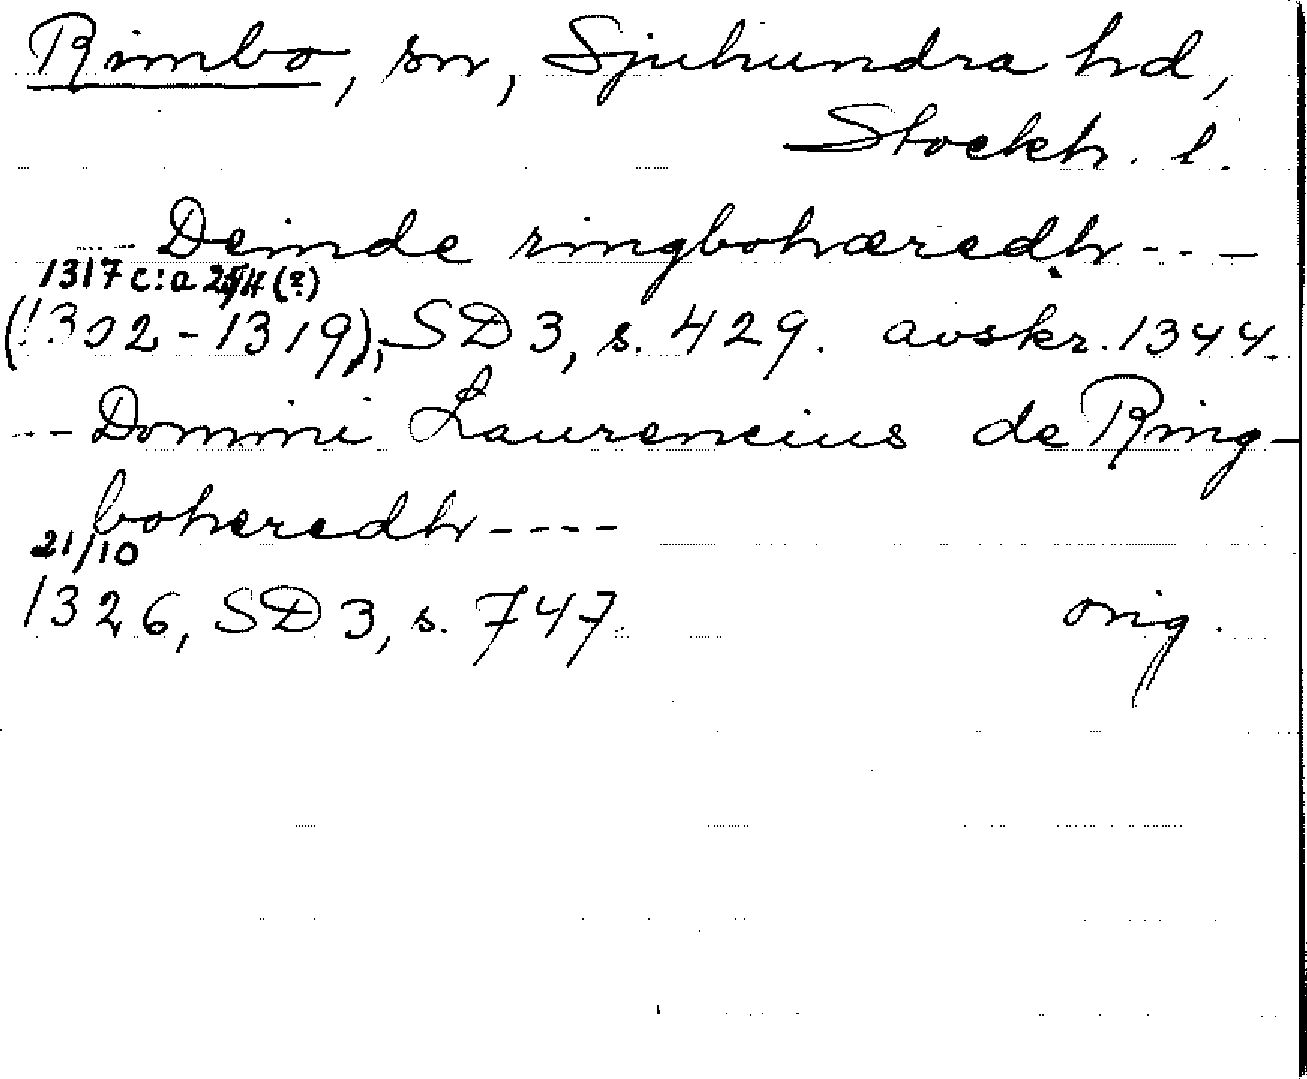 Rimbo, sn, Sjuhundra hd,
Stockh. l.
--- Deinde ringbohæredh ---
1317 c:a 25/4 (?)
(1302-1319), SD 3, s. 429. avskr. 1344.
--- Domini Laurencius de Ring-
boheredh ----
21/10
1326, SD 3, s. 747. orig.